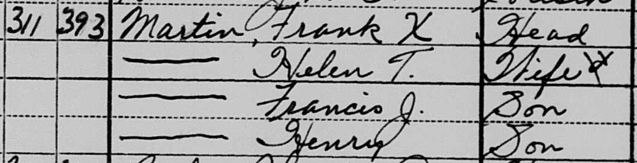 311 393 Martin, Frank X Head
—— Helen T. Wife X
—— Francis J. Son
—— Henry Son